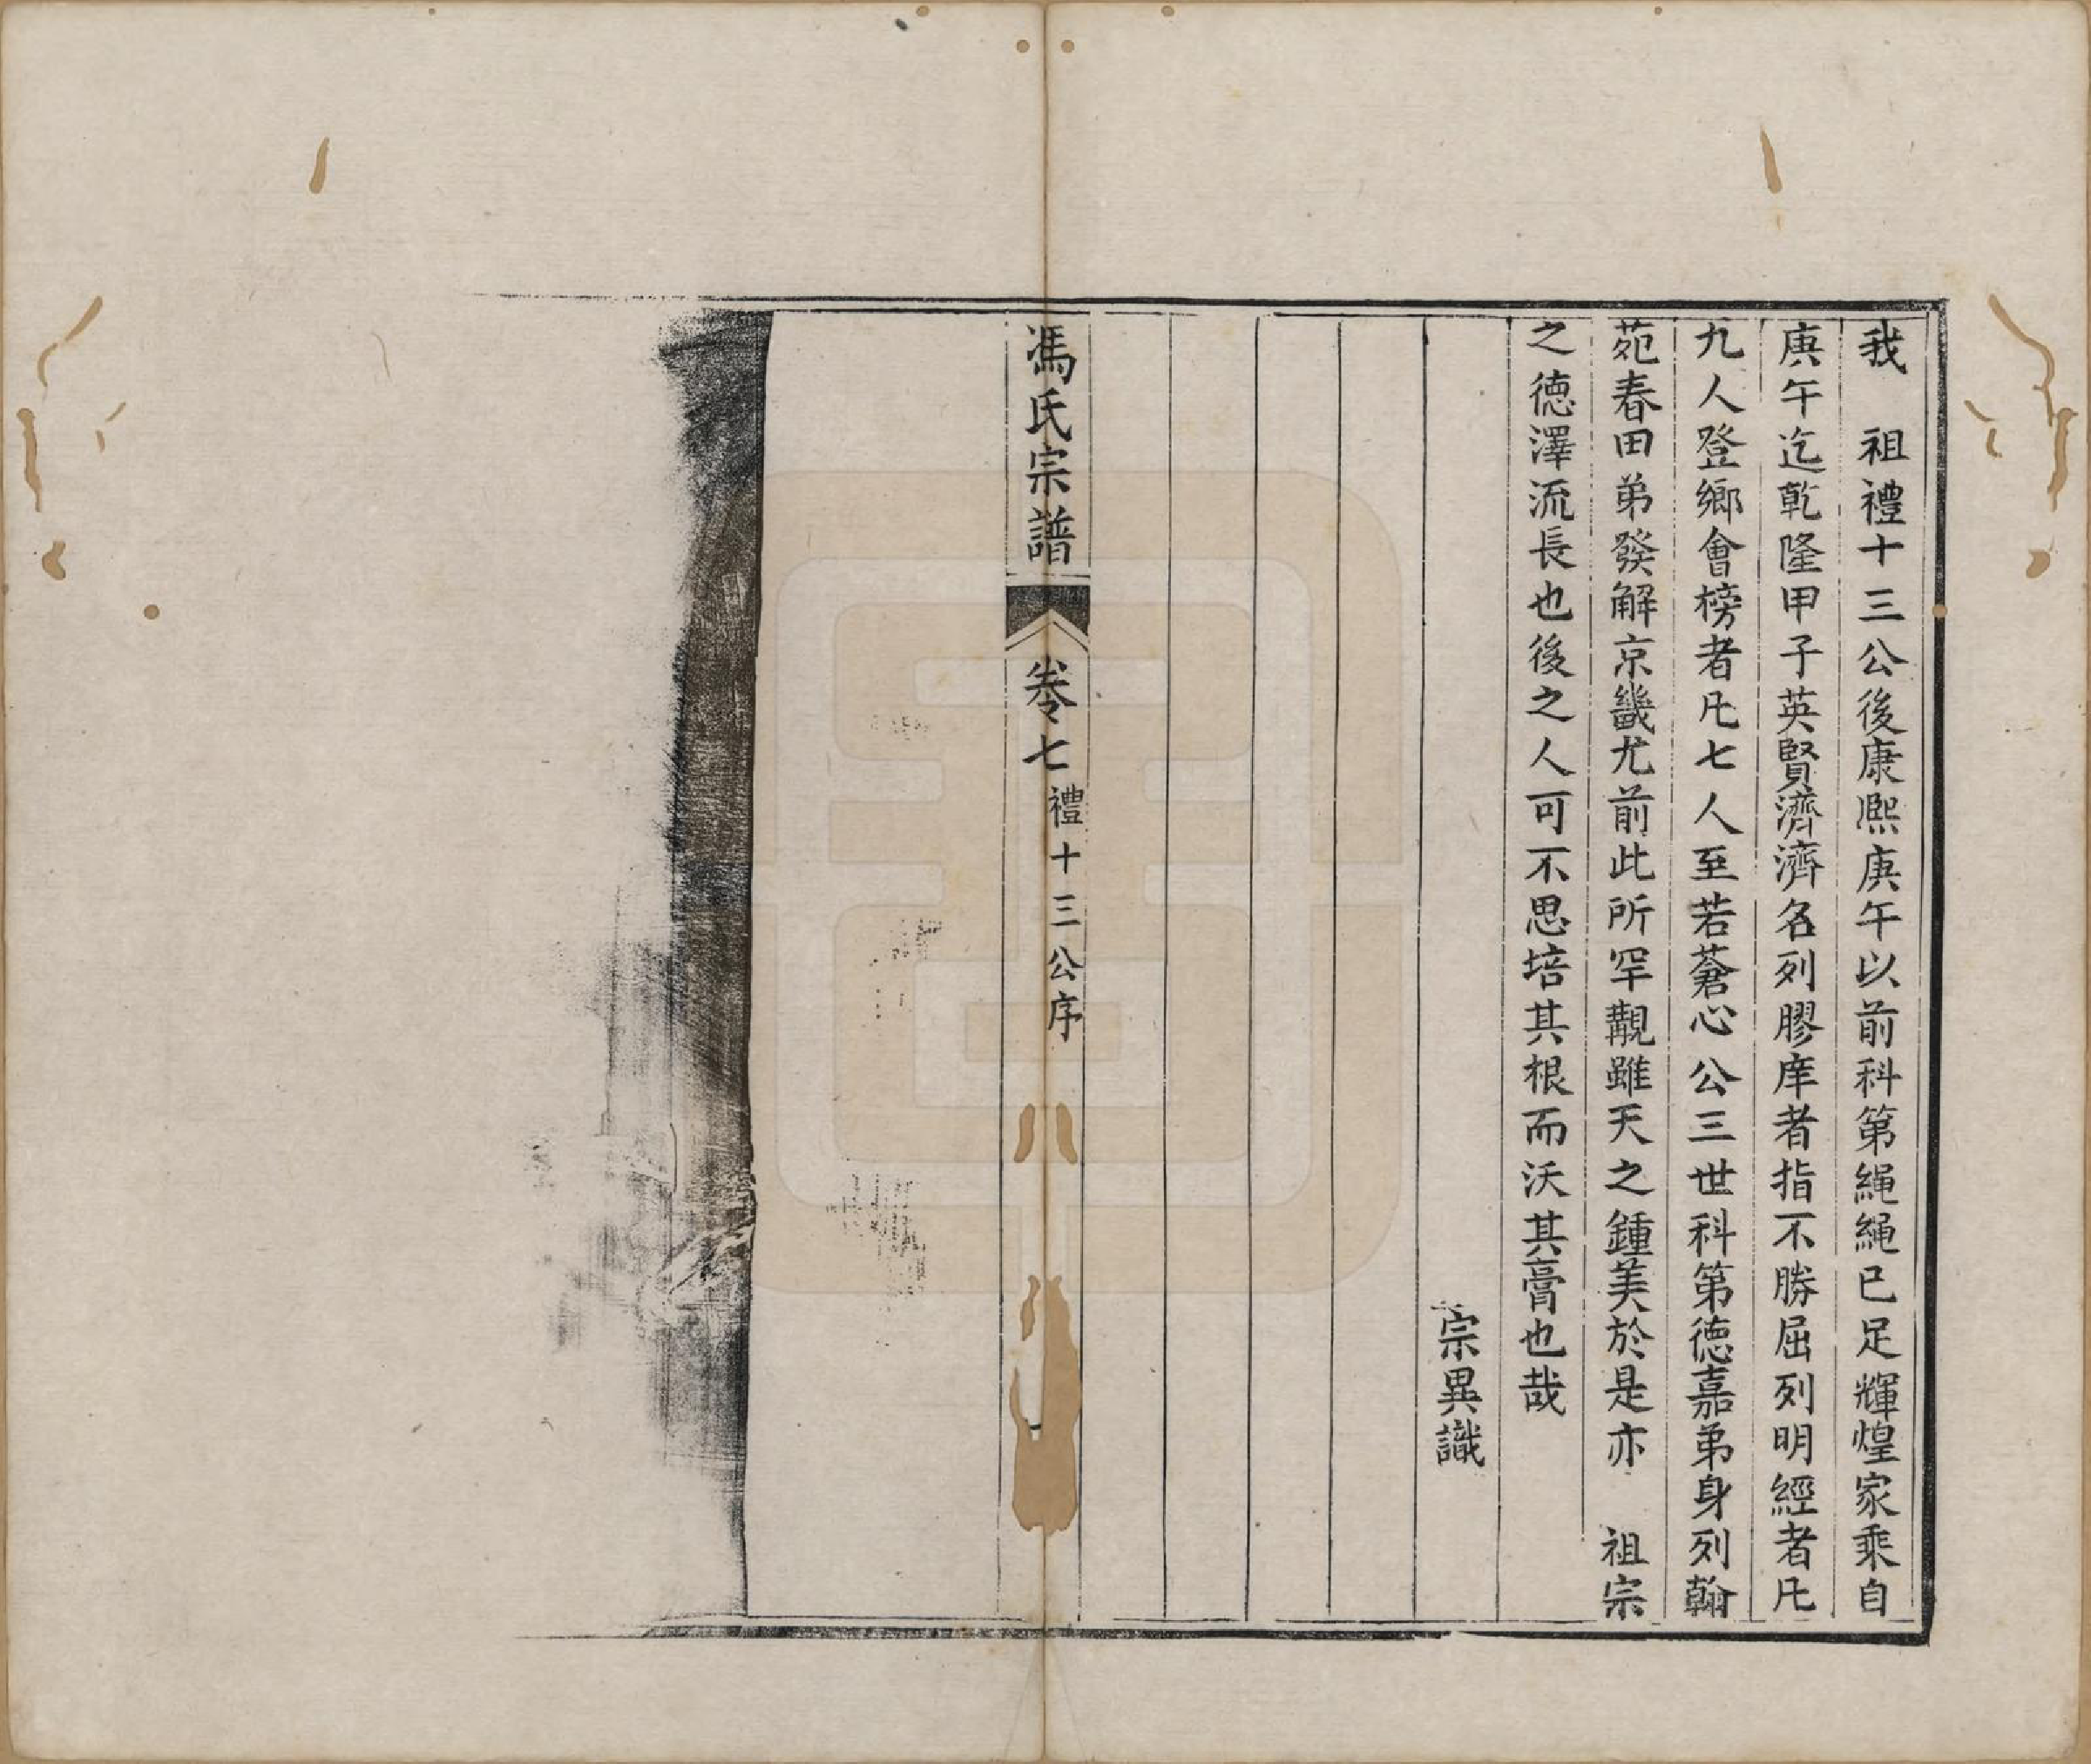 我　祖禮十三公後康熙庚午以前科第繩繩已足輝煌家乘自
庚午迄乾隆甲子英賢濟濟名列膠庠者指不勝屈列明經者凡
九人登鄉會榜者凡七人至若蒼心公三世科第德嘉弟身列翰
苑春田弟發解京畿尤前此所罕覯雖天之鍾美於是亦　祖宗
之德澤流長也後之人可不思培其根而沃其膏也哉
宗異識
馮氏宗譜
卷七
禮十三公序